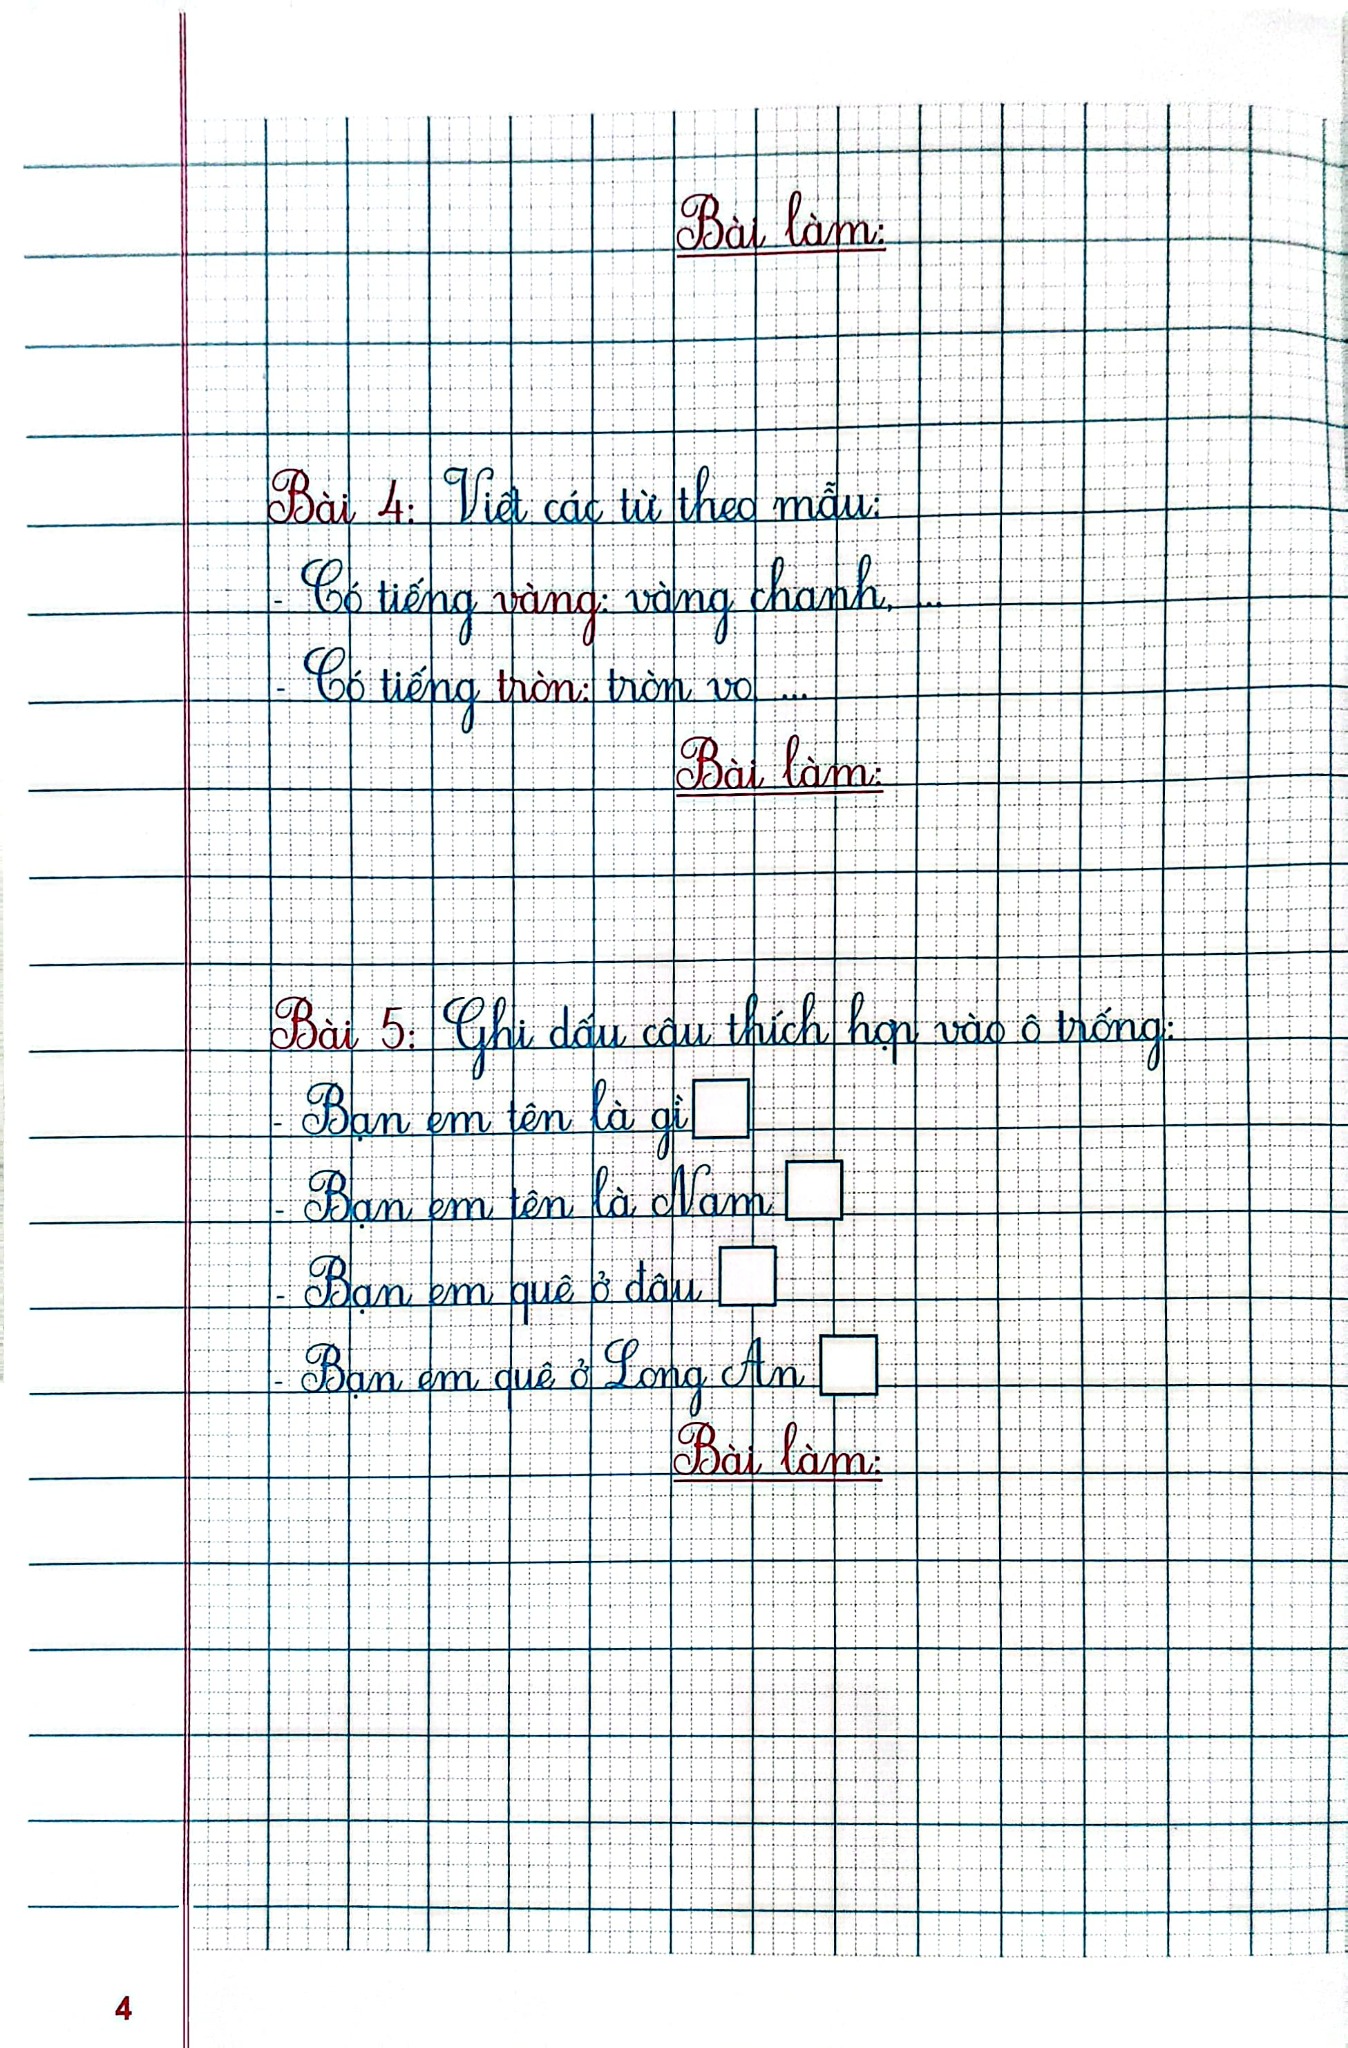 Bài làm:
Bài 4: Viết các từ theo mẫu:
- Có tiếng vàng: vàng chanh, ...
- Có tiếng tròn: tròn vo, ...
Bài làm:
Bài 5: Ghi dấu câu thích hợp vào ô trống:
- Bạn em tên là gì
- Bạn em tên là Nam
- Bạn em quê ở đâu
- Bạn em quê ở Long An
Bài làm:
4